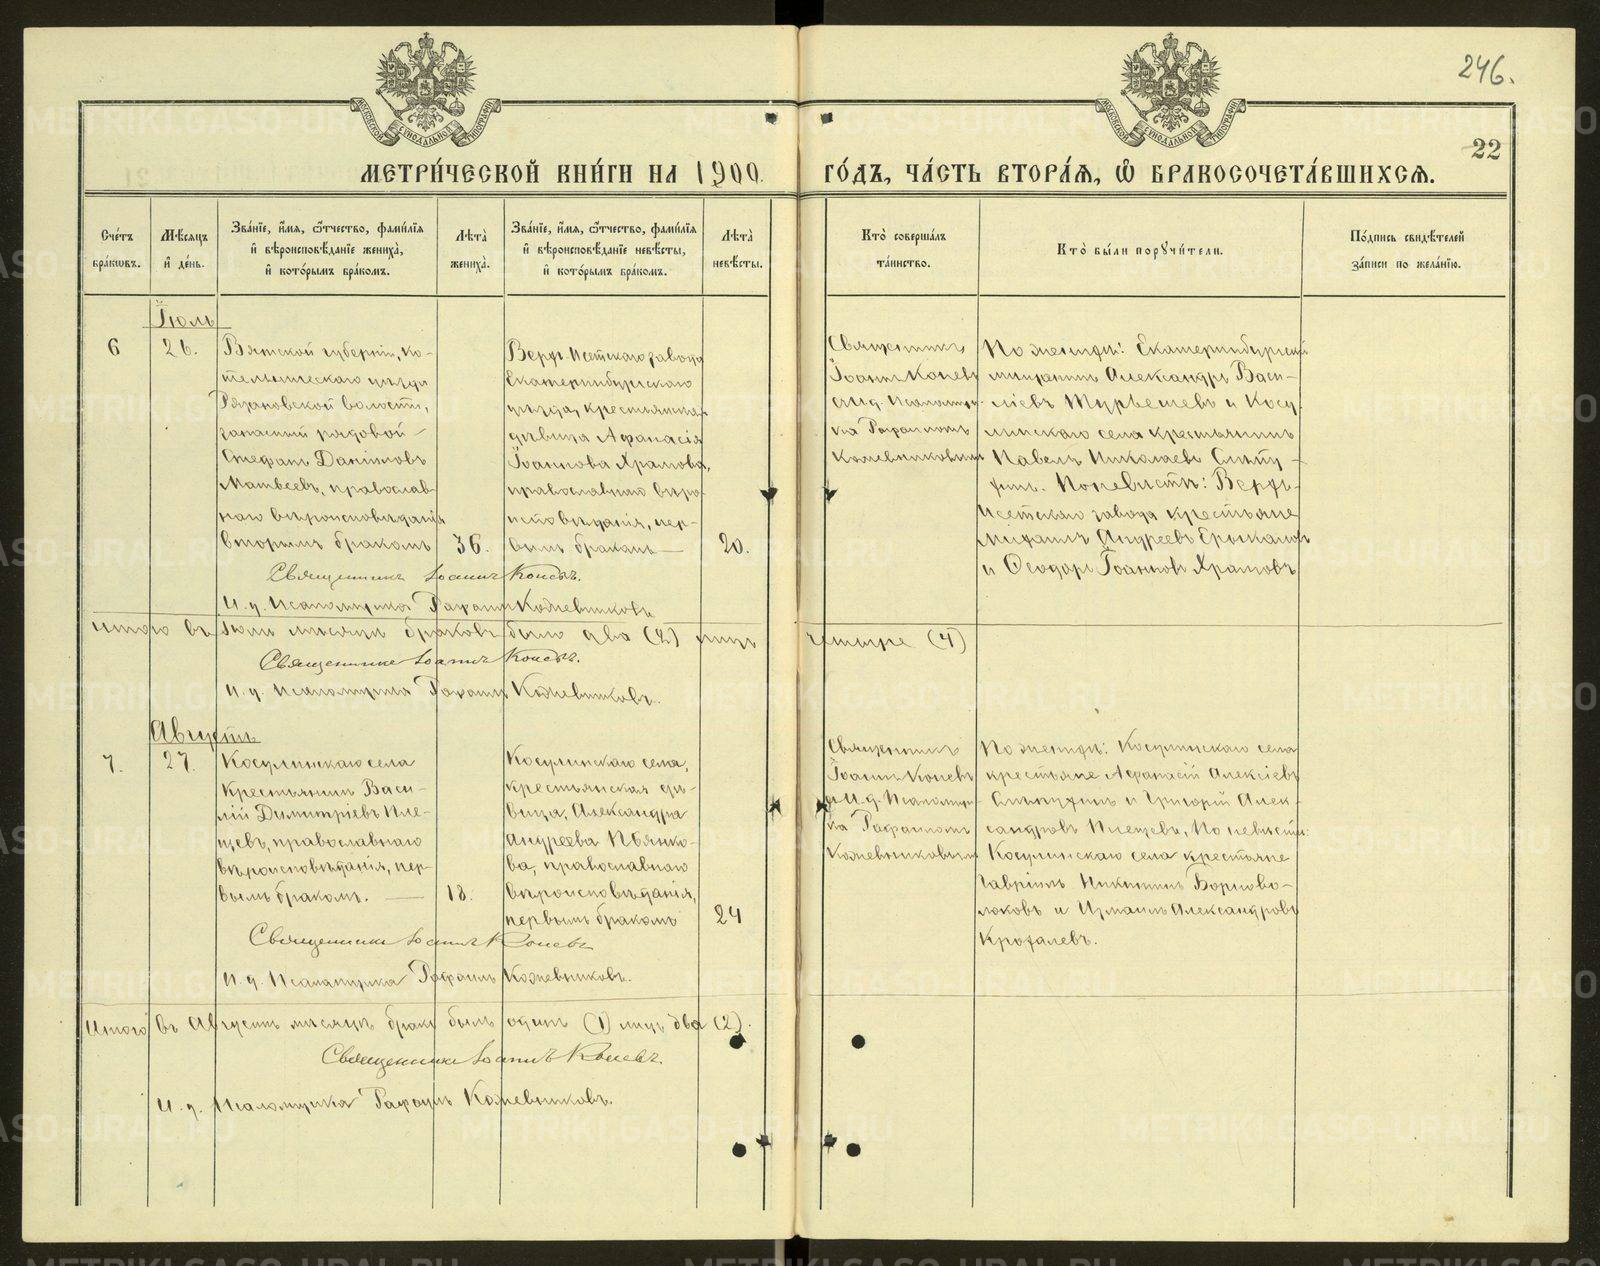 246.
22
МЕТРИ́ЧЕСКОЙ КНИ́ГИ НА 1900.
ГО́ДЪ, ЧА́СТЬ ВТОРА́Ѧ, Ѽ БРАКОСОЧЕТА́ВШИХСѦ.
Сче́тъ бра́кѡвъ.
Мѣ́сяцъ и҆ де́нь.
Зва́нїе, и҆́мя, ѻ҆́тчество, фами́лїя и҆ вѣроисповѣ́данїе жениха̀, и҆ кото́рымъ бра́комъ.
Лѣта̀ жениха̀.
Зва́нїе, и҆́мя, ѻ҆́тчество, фами́лїя и҆ вѣроисповѣ́данїе невѣ́сты, и҆ кото́рымъ бра́комъ.
Лѣта̀ невѣ́сты.
Кто̀ соверша́лъ та́инство.
Кто̀ бы́ли порꙋчи́тели.
По́дпись свидѣ́телей за́писи по жела́нїю.
Іюль
6
26.
Вятской губерніи, Ко-
тельническаго уѣзда
Рязановской волости,
запасный рядовой
Стефанъ Даніиловъ
Матвеевъ, православ-
наго вѣроисповѣданія
вторымъ бракомъ
36.
Верхъ-Исетскаго завода
Екатеринбургскаго
уѣзда, крестьянская
дѣвица Афанасія
Іоаннова Храмова,
православнаго вѣро-
исповѣданія, пер-
вымъ бракомъ
20.
Священникъ
Іоаннъ Коневъ
съ и.д. Псаломщи-
ка Рафаиломъ
Кожевниковымъ
По женихѣ: Екатеринбургскій
мѣщанинъ Александръ Васи-
ліевъ и Косу-
линскаго села крестьянинъ
Павелъ Николаевъ
По невѣстѣ: Верхъ-
Исетскаго завода крестьяне
Михаилъ Андреевъ
и Ѳеодоръ Іоанновъ Храмовъ
Священникъ Іоаннъ Коневъ.
И. д. Псаломщика Рафаилъ Кожевниковъ
Итого въ Іюлѣ мѣсяцѣ браковъ было два (2) лицъ четыре (4)
Священникъ Іоаннъ Коневъ.
И. д. Псаломщика Рафаилъ Кожевниковъ.
Августъ
7.
27.
Косулинскаго села
крестьянинъ Васи-
лій Димитріевъ Пле-
щевъ, православнаго
вѣроисповѣданія, пер-
вымъ бракомъ.
18.
Косулинскаго села,
крестьянская дѣ-
вица, Александра
Андреева Пьянко-
ва, православнаго
вѣроисповѣданія,
первымъ бракомъ
24
Священникъ
Іоаннъ Коневъ
съ И. д. Псаломщи-
ка Рафаиломъ
Кожевниковымъ
По женихѣ: Косулинскаго села
крестьяне Афанасій Алексіевъ
и Григорій Алек-
сандровъ Плещевъ, По невѣстѣ:
Косулинскаго села крестьяне
Гавріилъ Никитинъ Борново-
локовъ и Измаилъ Александровъ
Крохалевъ.
Священникъ Іоаннъ Коневъ
И. д. Псаломщика Рафаилъ Кожевниковъ.
Итого въ Августѣ мѣсяцѣ бракъ былъ одинъ (1) лицъ два (2).
Священникъ Іоаннъ Коневъ.
И. д. Псаломщика Рафаилъ Кожевниковъ.
METRIKI.GASO-URAL.RU